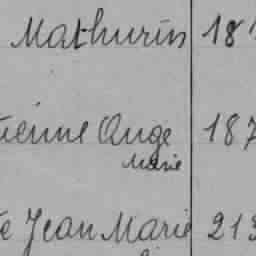 Mathurin 18
Ange 187
Marie
Jean Marie 213